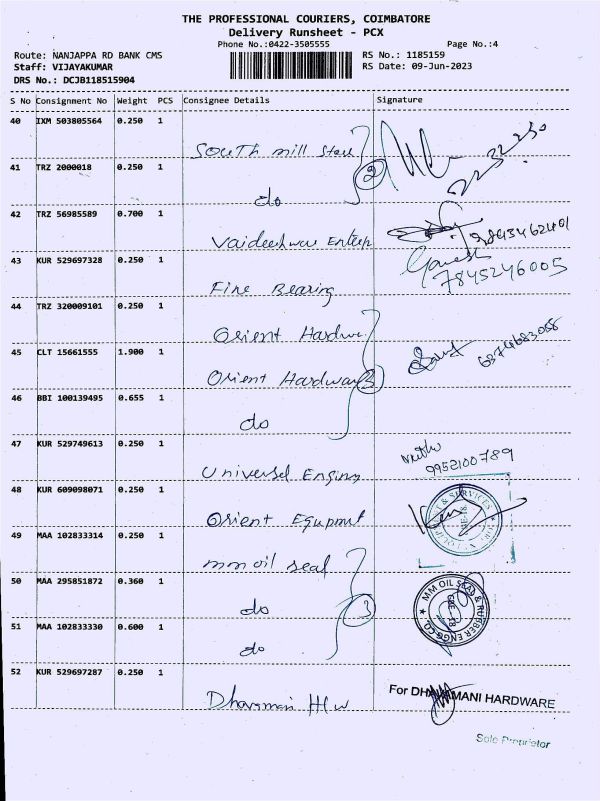 THE PROFESSIONAL COURIERS, COIMBATORE
Delivery Runsheet - PCX
Phone No.:0422-3505555 Page No.:4
Route: NANJAPPA RD BANK CMS RS No.: 1185159
Staff: VIJAYAKUMAR RS Date: 09-Jun-2023
DRS No.: DCJB118515904
S No Consignment No Weight PCS Consignee Details Signature
40 IXM 503805564 0.250 1
South mill Store
41 TRZ 2000018 0.250 1
2
do
42 TRZ 56985589 0.700 1
Vaideeshwar Enterp
43 KUR 529697328 0.250 1
Ganesh
7845246005
Fine Bearing
44 TRZ 320009101 0.250 1
Orient Hardwar
45 CLT 15661555 1.900 1
6374683058
Orient Hardwar 3
46 BBI 100139495 0.655 1
do
47 KUR 529749613 0.250 1
9952100789
Universel Enging
48 KUR 609098071 0.250 1
Orient Equpment
49 MAA 102833314 0.250 1
mm oil seal
50 MAA 295851872 0.360 1
MM OIL SEAL & RUBBER ENGG CO.
CBE - 18
do 3
51 MAA 102833330 0.600 1
do
52 KUR 529697287 0.250 1
For DHAVAMANI HARDWARE
Dhavamani H/w
Sole Proprietor